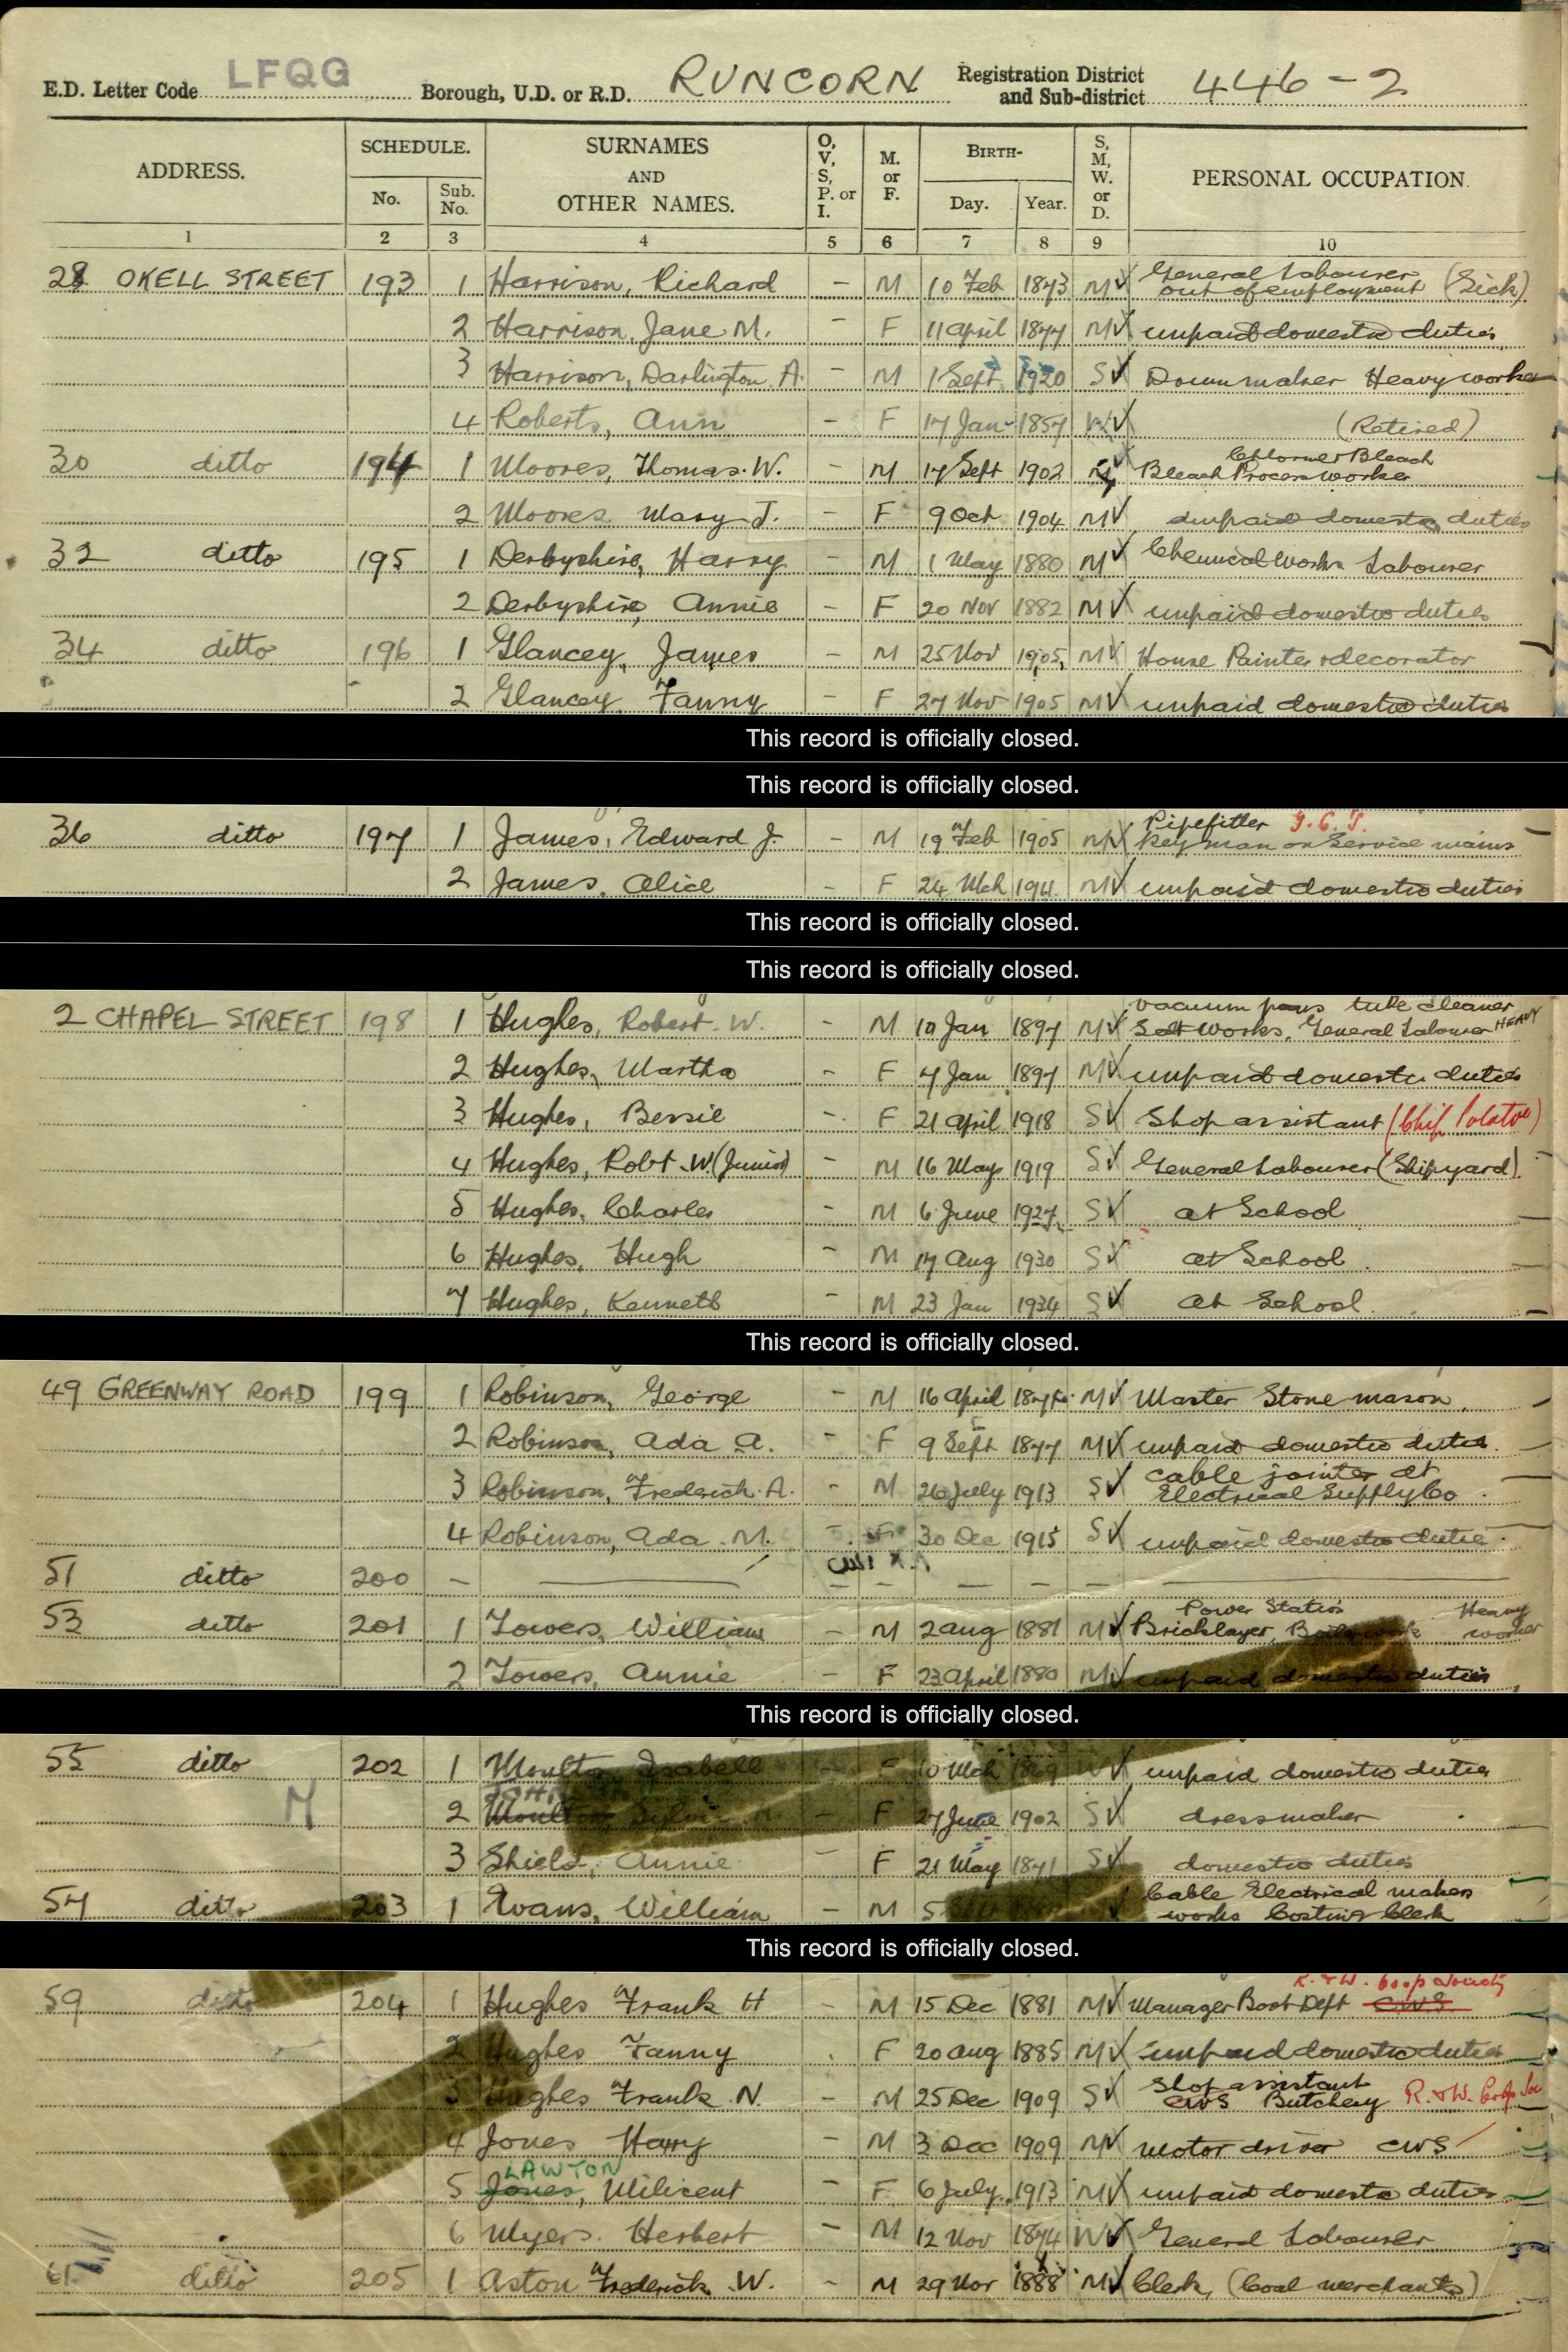 E.D. Letter Code LFQG Borough, U.D. or R.D. RUNCORN Registration District and Sub-district 446-2
ADDRESS. SCHEDULE. No. Sub. No. SURNAMES AND OTHER NAMES. O, V, S, P. or I. M. or F. BIRTH- Day. Year. S, M, W. or D. PERSONAL OCCUPATION.
1 2 3 4 5 6 7 8 9 10
28 OKELL STREET 193 1 Harrison, Richard - M 10 Feb 1873 M General Labourer out of employment (Sick)
2 Harrison, Jane M. - F 11 April 1877 M unpaid domestic duties
3 Harrison, Darlington A. - M 1 Sept 1920 S Heavy worker
4 Roberts, Ann - F 17 Jan 1857 W (Retired)
30 ditto 194 1 Moores, Thomas W. - M 17 Sept 1902 Bleach Process Worker
2 Moores Mary J. - F 9 Oct 1904 M unpaid domestic duties
32 ditto 195 1 Derbyshire, Harry - M 1 May 1880 M Chemical Works Labourer
2 Derbyshire, Annie - F 20 Nov 1882 M unpaid domestic duties
34 ditto 196 1 Glancey, James - M 25 Nov 1905 M House Painter & decorator
2 Glancey, Fanny - F 27 Nov 1905 M unpaid domestic duties
This record is officially closed.
This record is officially closed.
36 ditto 197 1 James, Edward J. - M 19 Feb 1905 M Pipefitter Key man on Service mains
2 James, Alice - F 24 Mch 1911 M unpaid domestic duties
This record is officially closed.
This record is officially closed.
2 CHAPEL STREET 198 1 Hughes, Robert W. - M 10 Jan 1897 M vacuum pans tube cleaner Salt Works, General Labourer HEAVY
2 Hughes, Martha - F 7 Jan 1897 M unpaid domestic duties
3 Hughes, Bessie - F 21 April 1918 S Shop assistant (Chip Potatoe)
4 Hughes, Robt. W. (Junior) - M 16 May 1919 S General Labourer (Shipyard)
5 Hughes, Charles - M 6 June 1927 S at School
6 Hughes, Hugh - M 17 Aug 1930 S at School
7 Hughes, Kenneth - M 23 Jan 1934 S at School
This record is officially closed.
49 GREENWAY ROAD 199 1 Robinson, George - M 16 April M Master Stone mason
2 Robinson, Ada A. - F 9 Sept 1877 M unpaid domestic duties
3 Robinson, Frederick A. - M 26 July 1913 S cable jointer at Electrical Supply Co
4 Robinson, Ada M. - F 30 Dec 1915 S unpaid domestic duties
51 ditto 200 -
53 ditto 201 1 Towers, William - M 2 Aug 1881 M Power Station Bricklayer, Heavy worker
2 Towers, Annie - F 23 April 1880 M unpaid domestic duties
This record is officially closed.
55 ditto 202 1 Moulton Isabell - F 10 Mch 1869 W unpaid domestic duties
M 2 Moulton, - F 27 June 1902 S dressmaker
3 Shield, Annie - F 21 May 1871 S domestic duties
57 ditto 203 1 Evans, William - M 5 Cable Electrical makers works Costing Clerk
This record is officially closed.
59 ditto 204 1 Hughes Frank H - M 15 Dec 1881 M Manager Boot Dept C.W.S. R. & W. Coop Society
2 Hughes Fanny F 20 Aug 1885 M unpaid domestic duties
3 Hughes Frank N. - M 25 Dec 1909 S Shop assistant CWS Butchery R. & W. Coop Soc
4 Jones Harry - M 3 Dec 1909 M motor driver CWS
LAWTON
5 Jones, Milicent - F 6 July 1913 M unpaid domestic duties
6 Myers Herbert - M 12 Nov 1874 W General Labourer
61 ditto 205 1 Aston Frederick W. - M 29 Nov 1888 M Clerk, (Coal merchants)